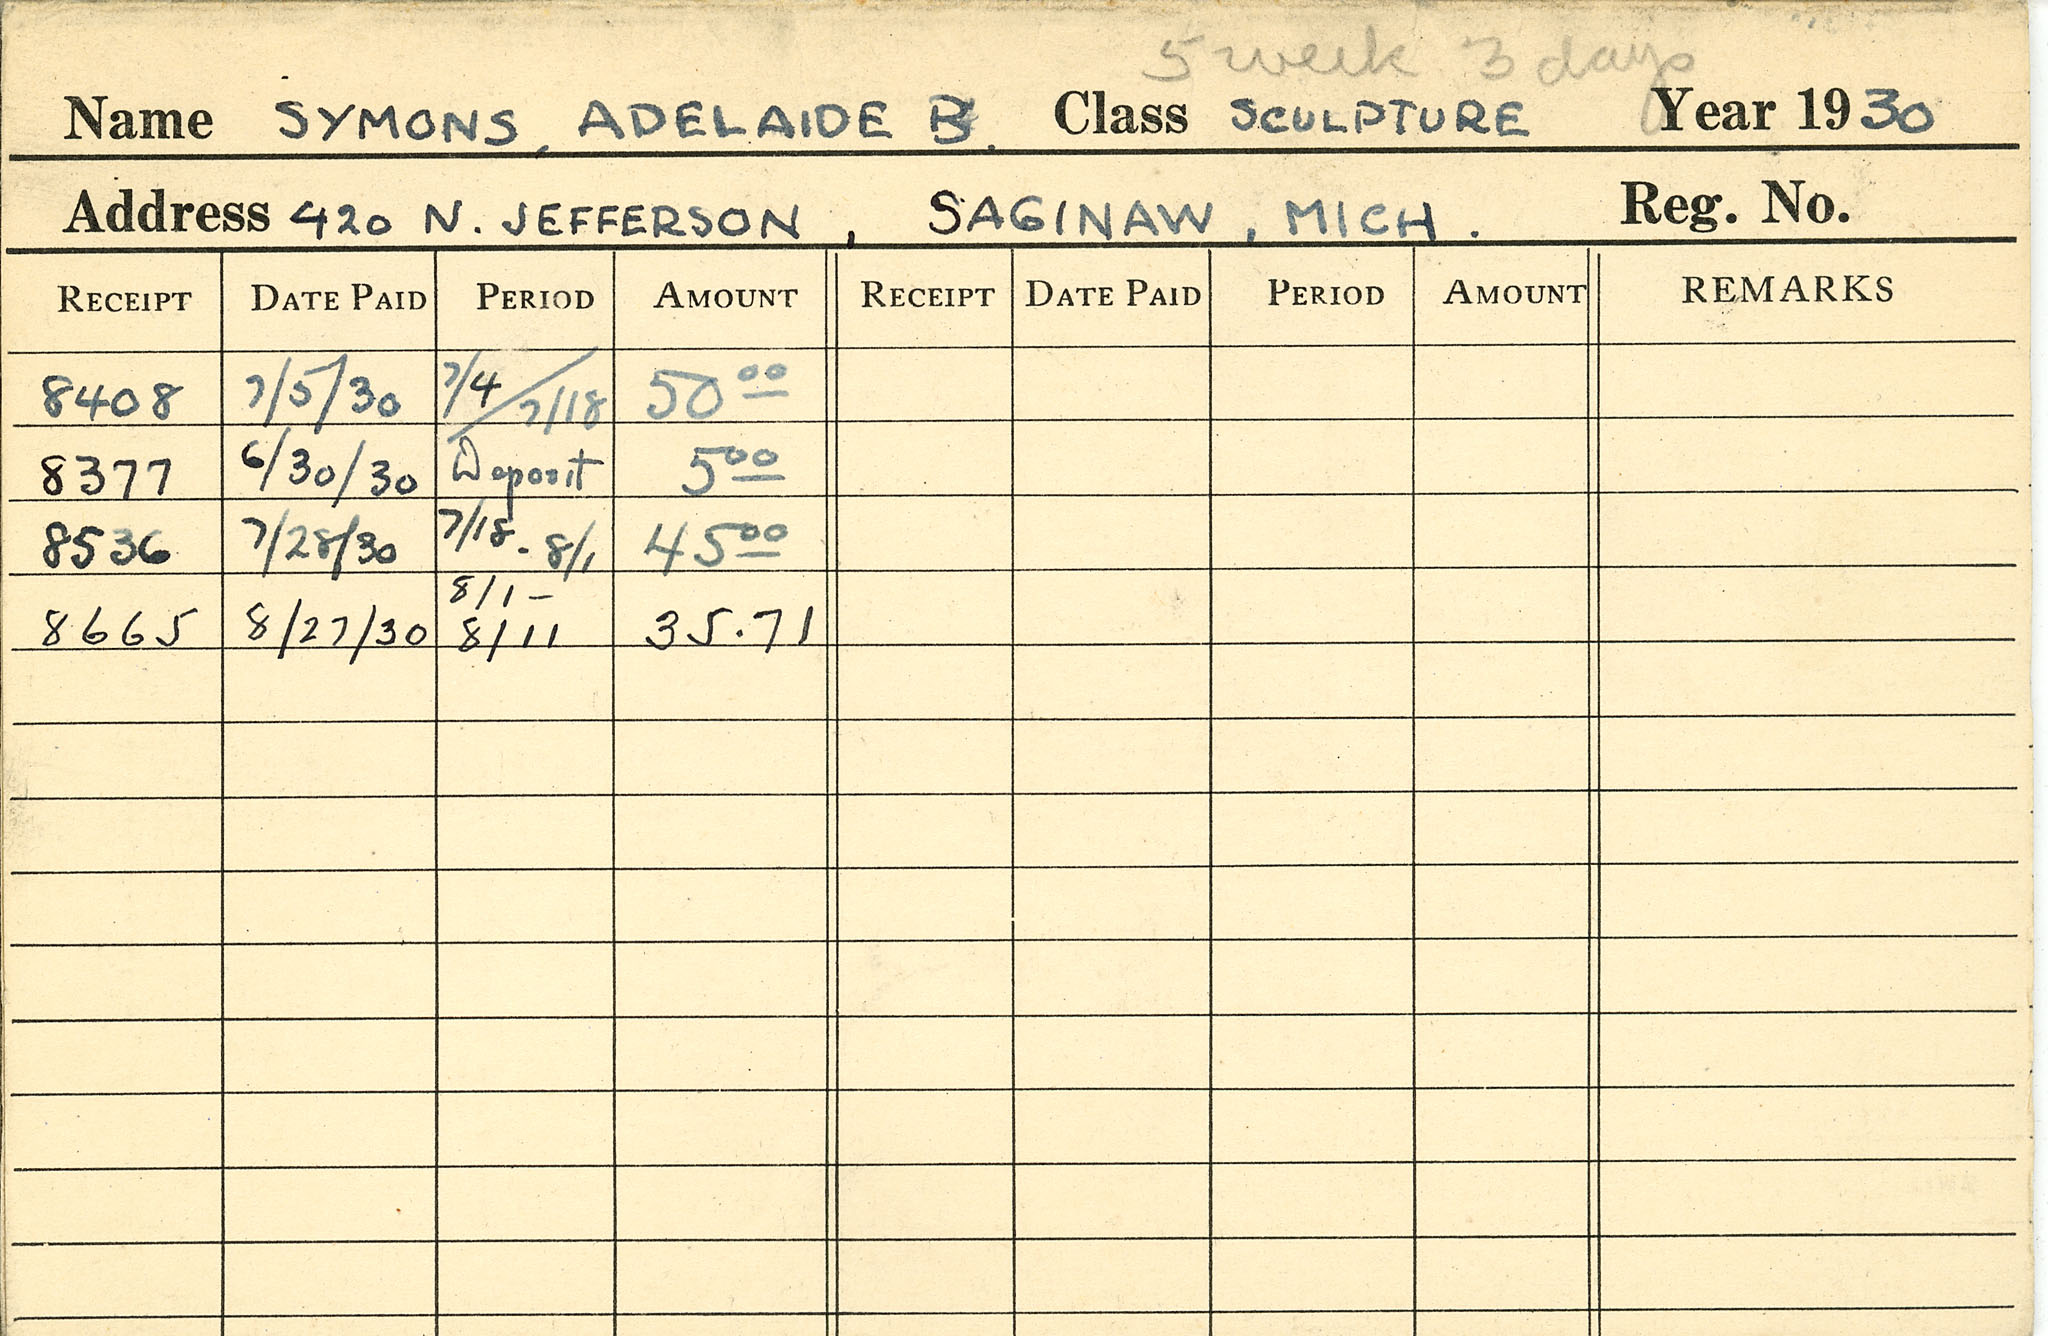 5 week 3 days
Name SYMONS, ADELAIDE B. Class SCULPTURE Year 1930
Address 420 N. JEFFERSON, SAGINAW, MICH. Reg. No.
RECEIPT DATE PAID PERIOD AMOUNT RECEIPT DATE PAID PERIOD AMOUNT REMARKS
8408 7/5/30 7/4 / 7/18 50 00
8377 6/30/30 Deposit 5 00
8536 7/28/30 7/18 - 8/1 45 00
8/1 -
8665 8/27/30 8/11 35.71